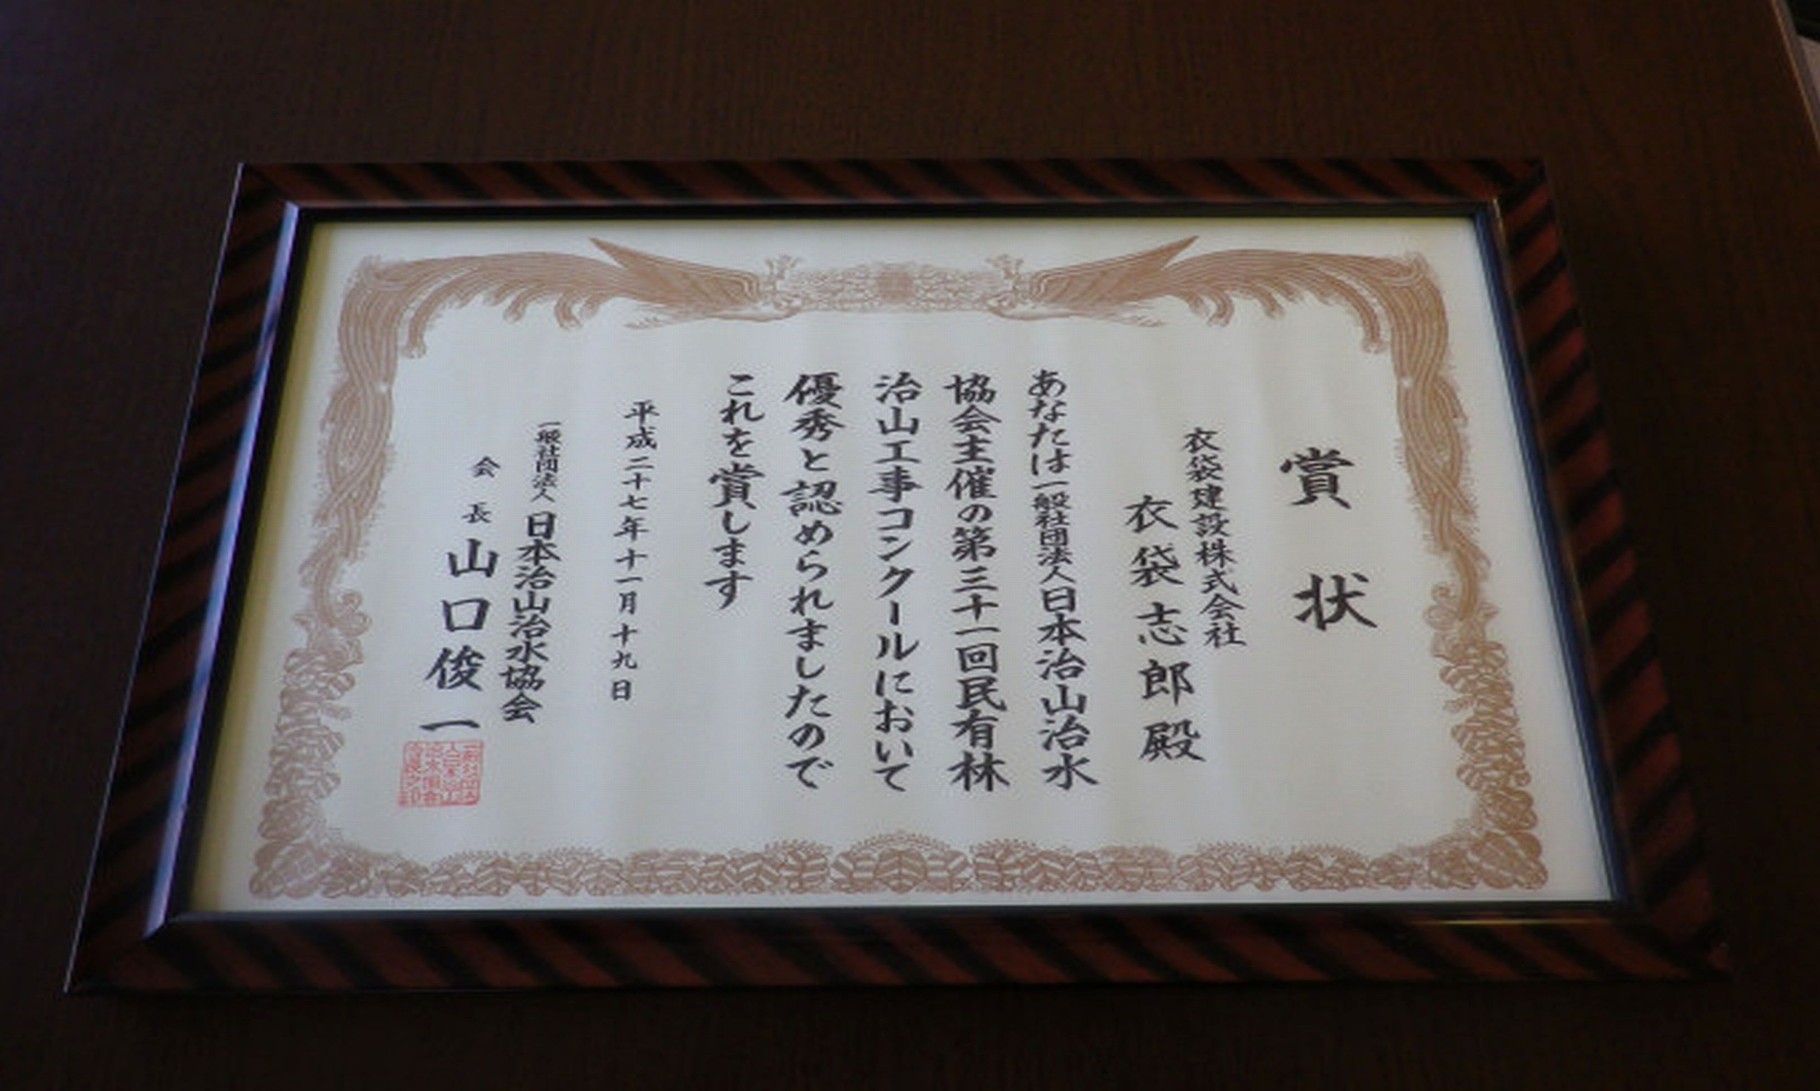 賞状
衣袋建設株式会社
衣袋志郎殿
あなたは一般社団法人日本治山治水
協会主催の第三十一回民有林
治山工事コンクールにおいて
優秀と認められましたので
これを賞します
平成二十七年十一月十九日
一般社団法人日本治山治水協会
会長山口俊一